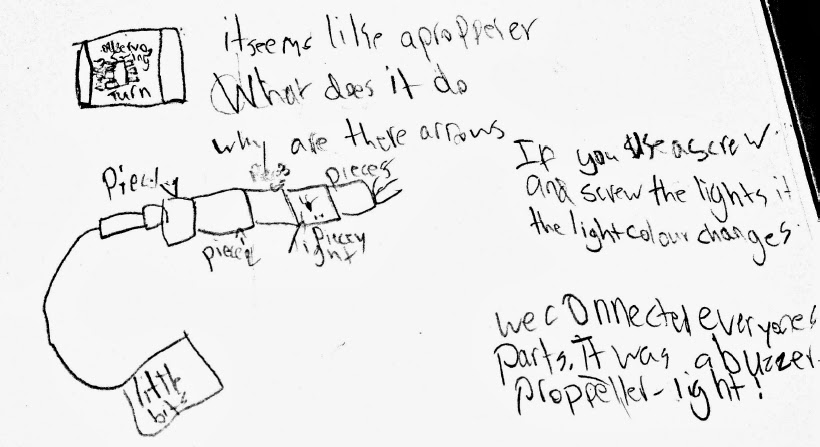 itseems like apropperer
What does it do
why are there arrows
Turn
pieces
pieces
little
bits
If you use a screw
and screw the lights it
the light colour changes.
we connected everyones
parts. It was a buzzer-
proppeller-light!